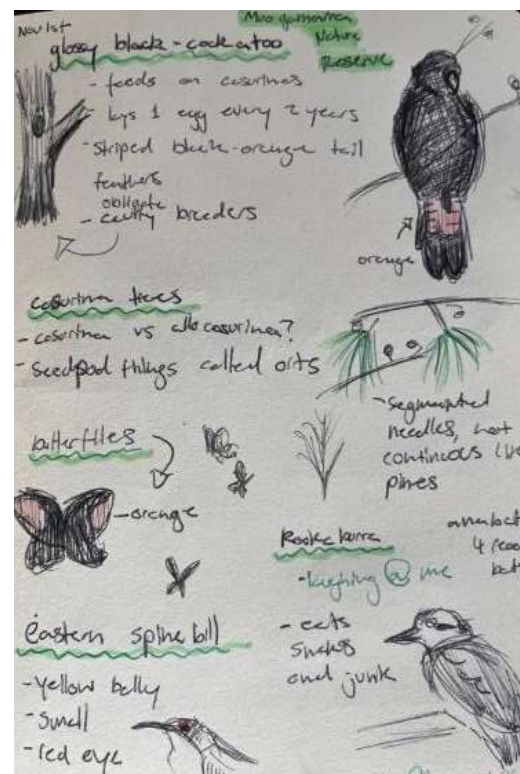 Nov 1st
Nature
Reserve
glossy black-cockatoo
- feeds on casurinas
- lays 1 egg every 2 years
- striped black-orange tail
feathers
obligate
- cavity breeders
orange
casurina trees
- casurina vs allocasurina?
- seedpod things called orts
- segmented
needles, not
continuous
pines
butterflies
- orange
Kookaburra
- laughing @ me
- eats
snakes
and junk
eastern spinebill
- yellow belly
- small
- red eye